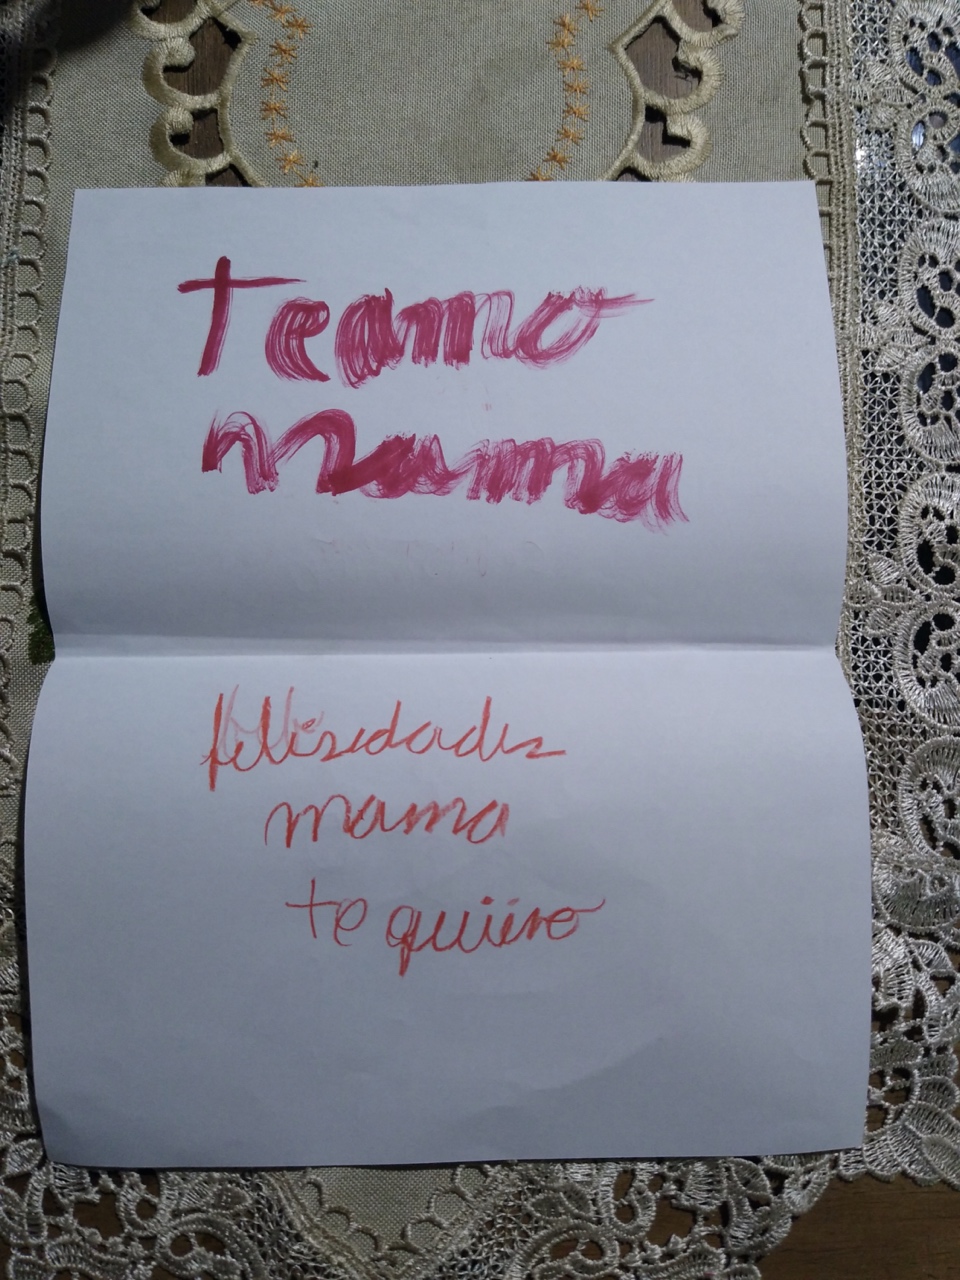 Te amo
Mama
felisedades
mama
te quiero